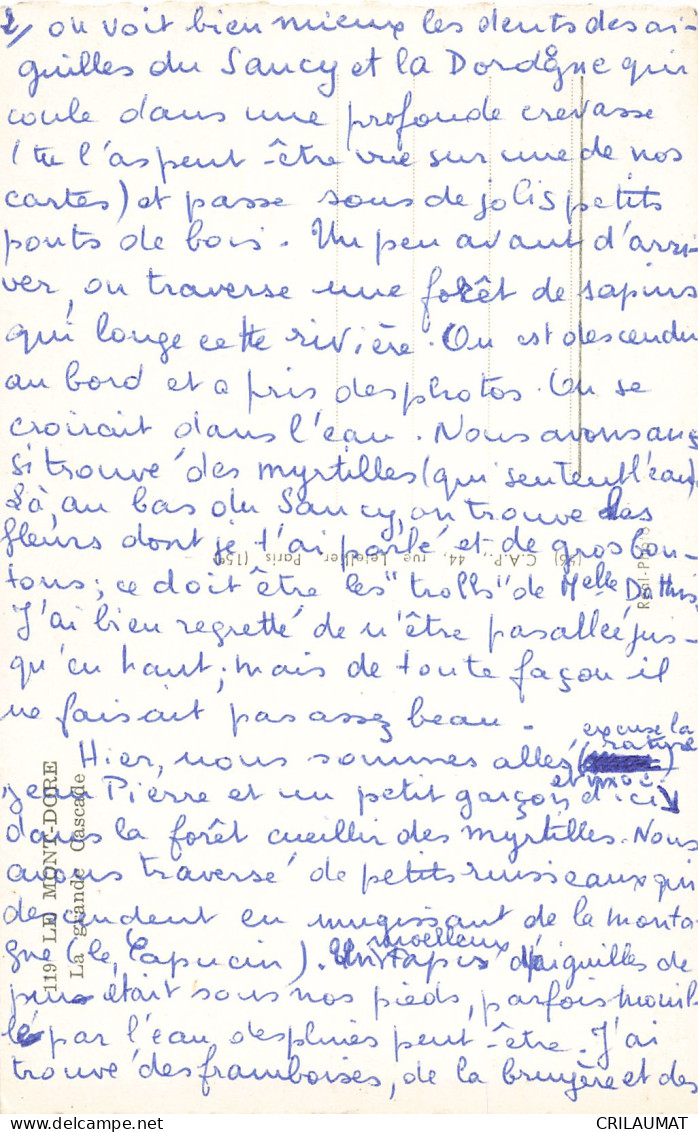 2/ on voit bien mieux les dents des ai-
guilles du Sancy et la Dordogne qui
coule dans une profonde crevasse
(tu l'as peut-être vue sur une de nos
cartes) et passe sous de jolis petits
ponts de bois. Un peu avant d'arri-
ver, on traverse une forêt de sapins
qui longe cette rivière. On est descendu
au bord et a pris des photos. On se
croirait dans l'eau. Nous avons aus
si trouvé des myrtilles (qui sentent l'eau).
Là, au bas du Sancy, on trouve las
fleurs dont je t'ai parlé et de gros bou-
tons ; ce doit être les "trolls" de Melle
J'ai bien regretté de n'être pas allée jus-
qu'en haut ; mais de toute façon il
ne faisait pas assez beau.
Hier, nous sommes allés (excuse la rature)
Jean Pierre et un petit garçon d'ici et moi
dans la forêt cueillir des myrtilles. Nous
avons traversé de petits ruisseaux qui
descendent en mugissant de la monta-
gne (le Capucin). Un tapis moelleux d'aiguilles de
pin était sous nos pieds, parfois mouil
lé par l'eau des pluies peut-être. J'ai
trouvé des framboises, de la bruyère et des
119 LE MONT-DORE
La grande Cascade
C.A.P., 44, rue Letellier Paris (15e)
CRILAUMAT